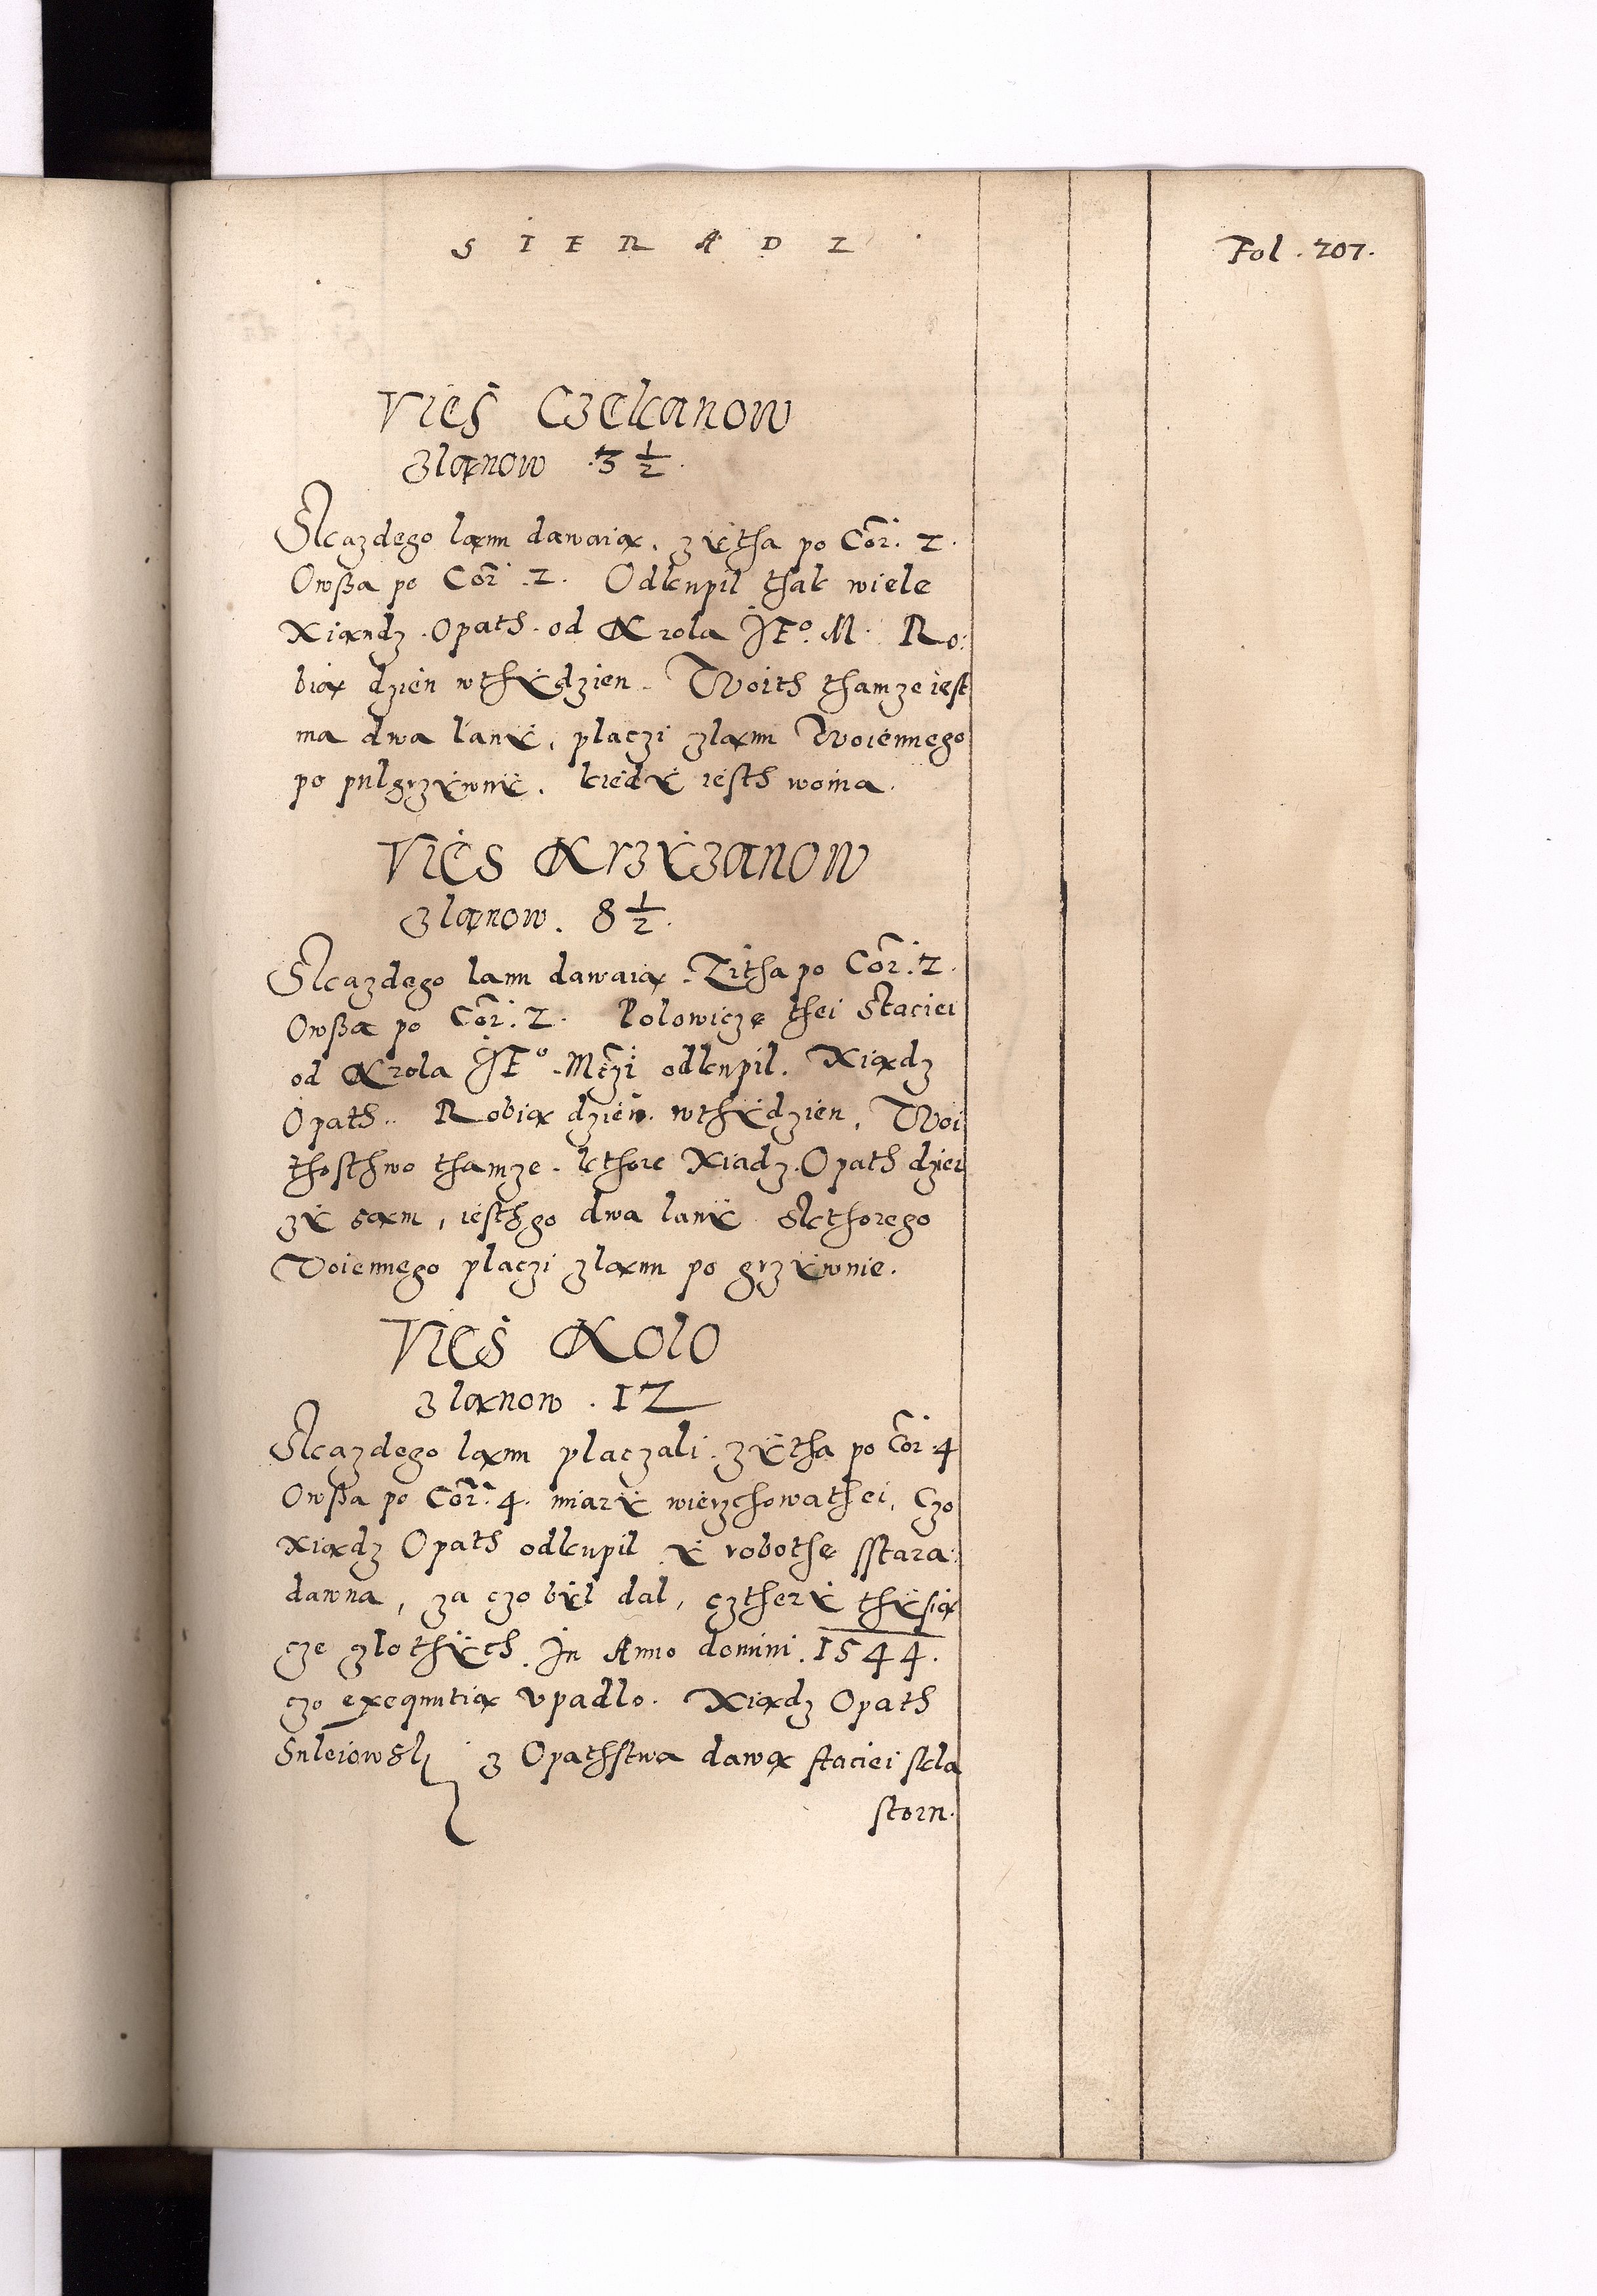 SIERADZ
Fol. 207.
Vieś Czekanow
z łanow . 3 1/2.
Skazdego łanu dawaią, zÿtha po Cor. 2.
Owßa po Cor. 2. Odkupil thak wiele
Xiandz Opath od Krola JE° M. Ro:
bią dzień w thÿdzien. Woith thamze iest
ma dwa lanÿ, placzi z łanu Woiennego
po pulgrzÿwnÿ, kiedÿ iesth woina.
Vieś Krzÿzanow
z łanow. 8 1/2.
Skazdego lanu dawaią. Zitha po Cor. 2.
Owßa po Cor. 2. Polowiczę thei Staciei
od Krola JE° Mczi odkupil. Xiądz
Opath. Robią dzień w thÿdzien, Woi
thosthwo thamze. kthore Xiadz Opath dzier
zÿ sąm, iesth go dwa lanÿ Skthorego
Woiennego placzi z łanu po grzÿwnie.
Vieś Kolo
z łanow . 12
Skazdego łanu placzali. zÿtha po Cor. 4
Owßa po Cor. 4. miarÿ wierzchowathei, Czo
xiądz Opath odkupil ÿ robothę sstara:
dawna, za czo bÿl dal, cztherÿ thÿsią
cze zlothÿch. In Anno domini. 1544.
czo exequutią vpadlo. Xiądz Opath
Suleiowski z Opathstwa dawa staciei skla
storu.